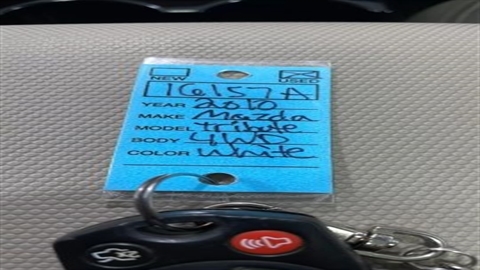 NEW USED
16157A
YEAR 2010
MAKE Mazda
MODEL Tribute
BODY 4WD
COLOR White